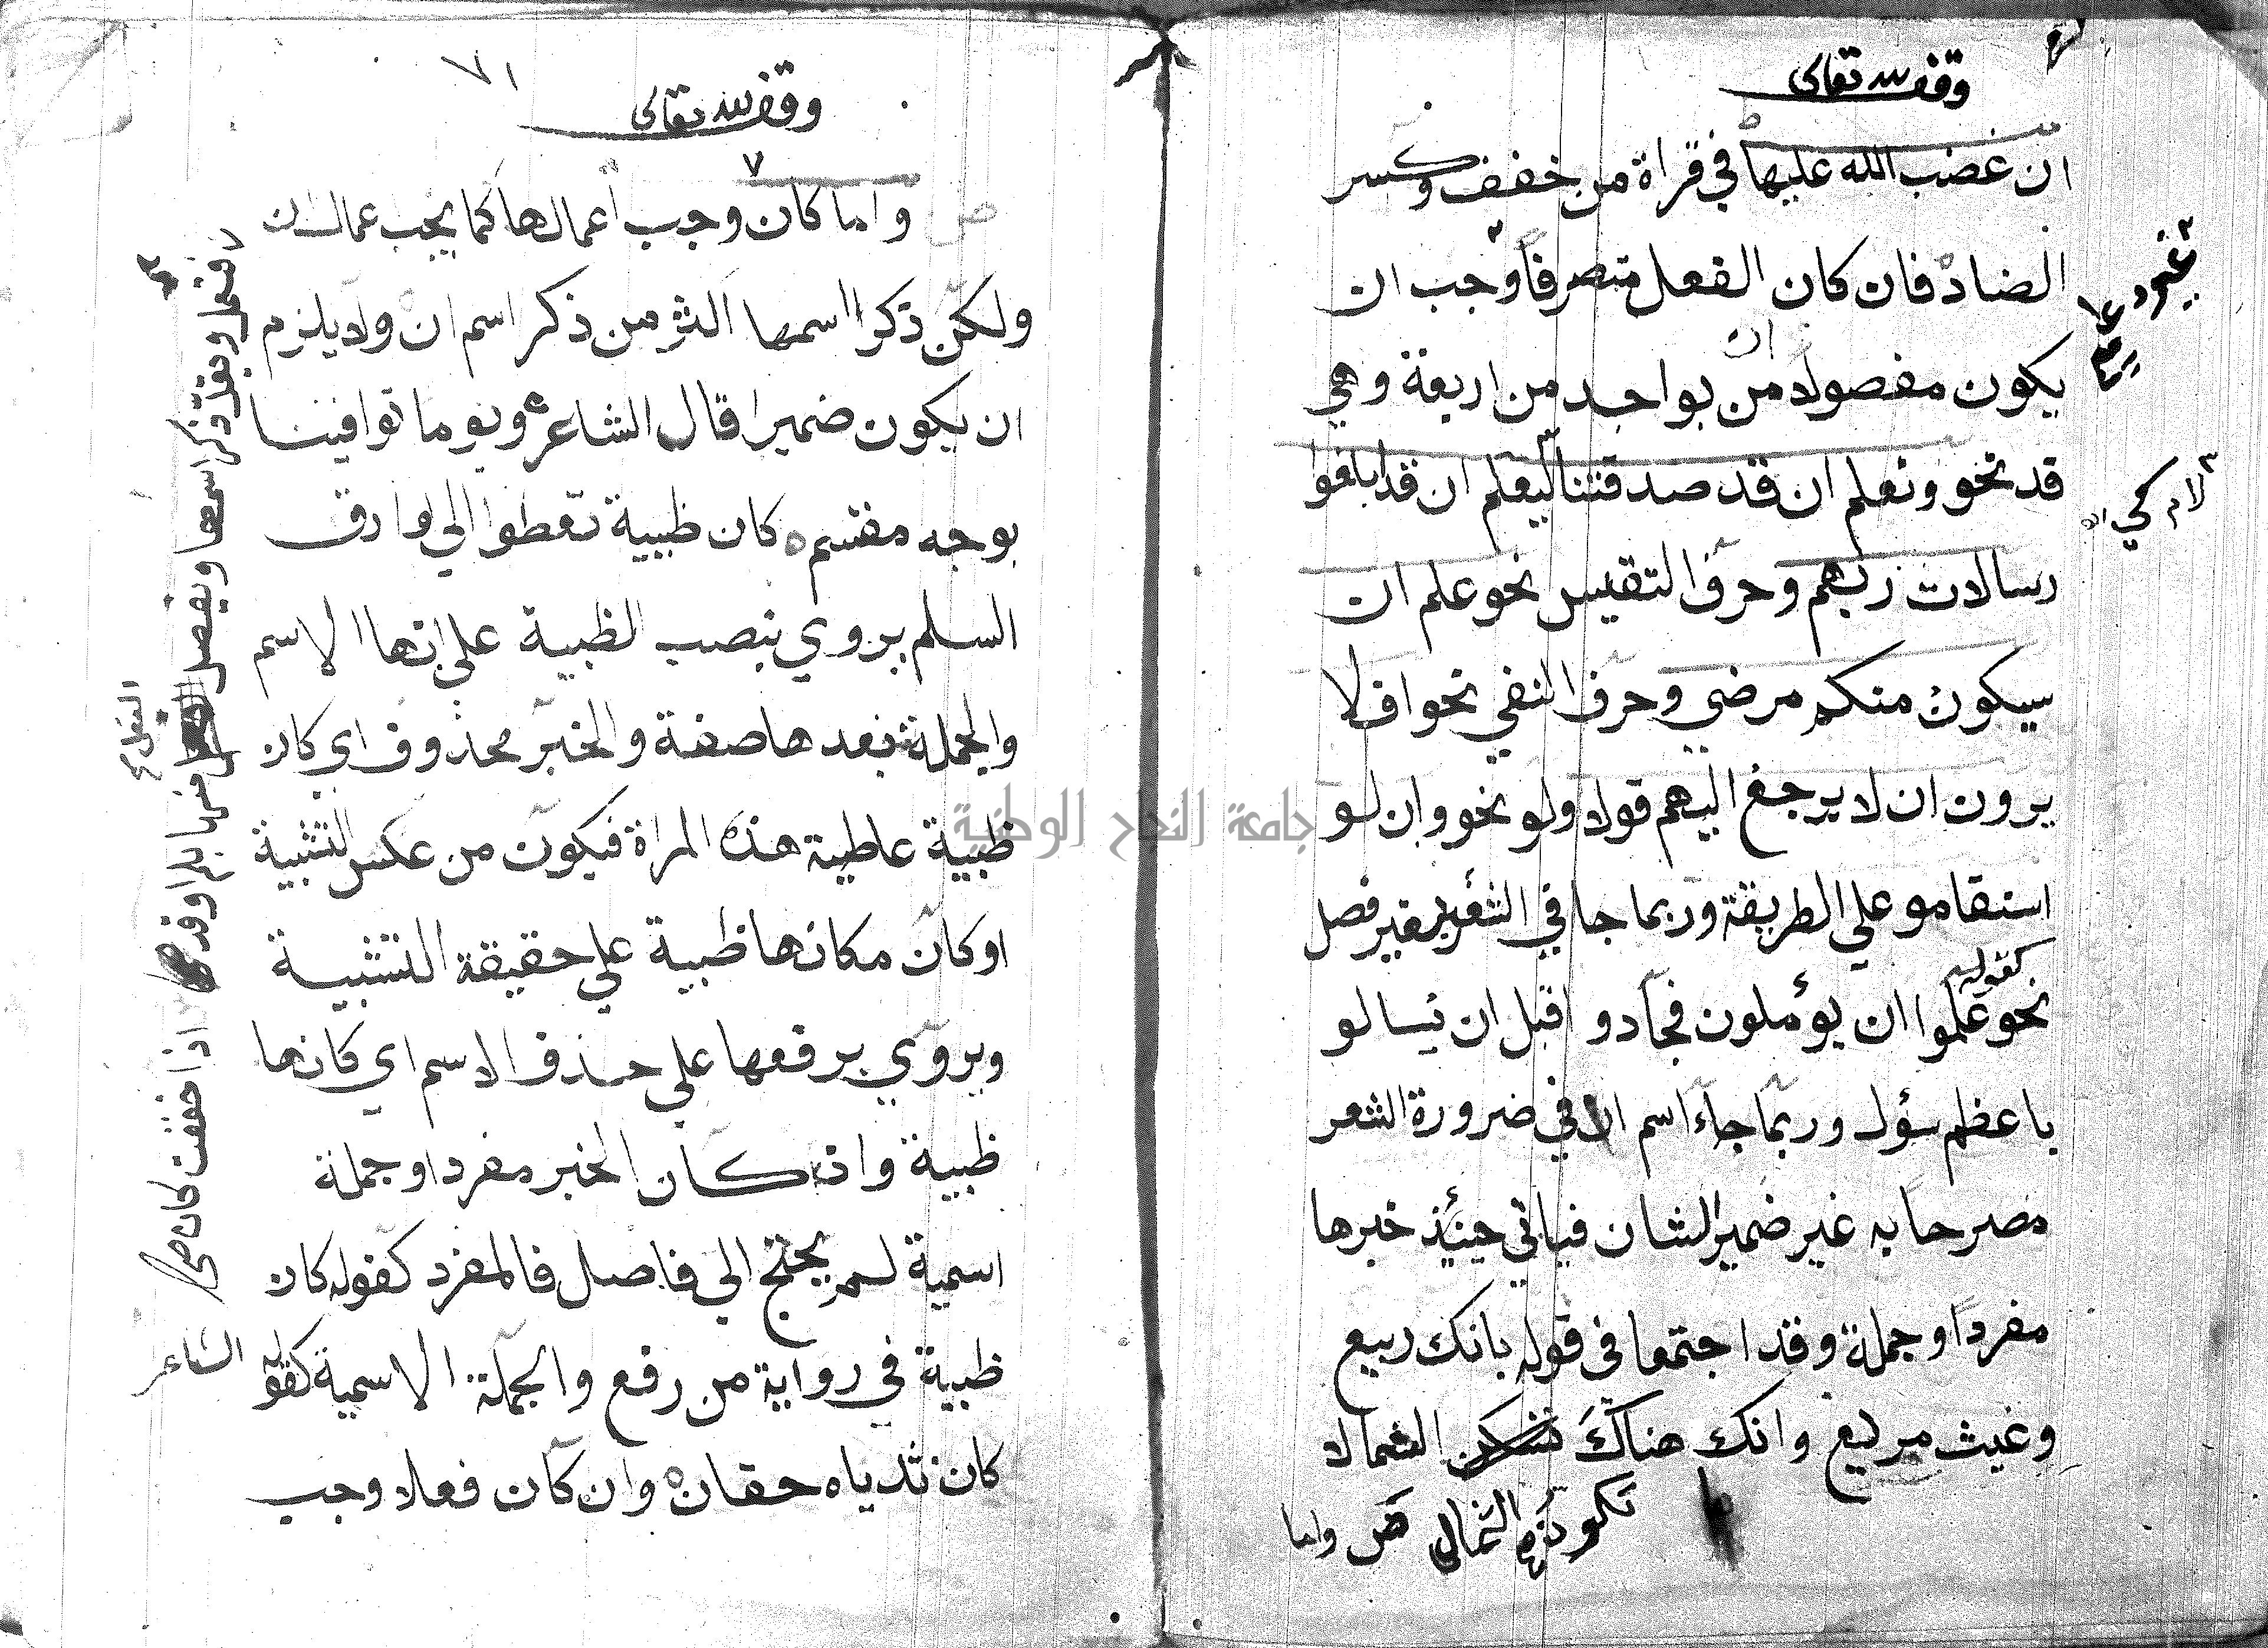 وقف لله تعالى
ان غضب الله عليها في قراة من خفف وكسر
الضاد فان كان الفعل متصرفا وجب ان
غير دعاء
يكون مفصولا من ان بواحد من اربعة وهي
قد نحو ونعلم ان قد صدقتنا ليعلم ان قد ابلغوا
لام كي
رسالات ربهم وحرف التنفيس نحو علم ان
سيكون منكم مرضي وحرف النفي نحو افلا
يرون ان لا يرجع اليهم قولا ولو نحو وان لو
استقامو علي الطريقة وربما جا في الشعر بغير فصل
كقوله
نحو علموا ان يؤملون فجادوا قبل ان يسالو
باعظم سؤل وربما جاء اسم ان في ضرورة الشعر
مصرحا به غير ضمير الشان فياتي حينئذ خبرها
مفردا وجملة وقد اجتمعا في قوله بانك ربيع
وغيث مريع وانك هناك تكن الشمالا
تكون الثمالا ص واما
٧١
وقف لله تعالى
ص واما كان وجب اعمالها كما يجب عمال ان
ولكن ذكر اسمها اكثر من ذكر اسم ان ولا يلزم
ان يكون ضميرا قال الشاعر ويوما توافينا
بوجه مقسم كان ظبية تعطوا الي وارق
السلم يروي بنصب الظبية علي انها الاسم
والجملة بعدها صفة والخبر محذوف اي كان
ظبية عاطية هذه المراة فيكون من عكس التشبية
او كان مكانها ظبية علي حقيقة التشبية
ويروي برفعها علي حذف الاسم اي كانها
ظبية واذ كان الخبر مفردا وجملة
اسمية لم يحتج الي فاصل فالمفرد كقوله كان
ظبية في رواية من رفع والجملة الاسمية كقوله الشاعر
كان ثدياه حقان وان كان فعلا وجب
فتعمل ويقل ذكر اسمها ويفصل الفعل منها بلم او قد
اذا خففت كان ص
جامعة النجاح الوطنية